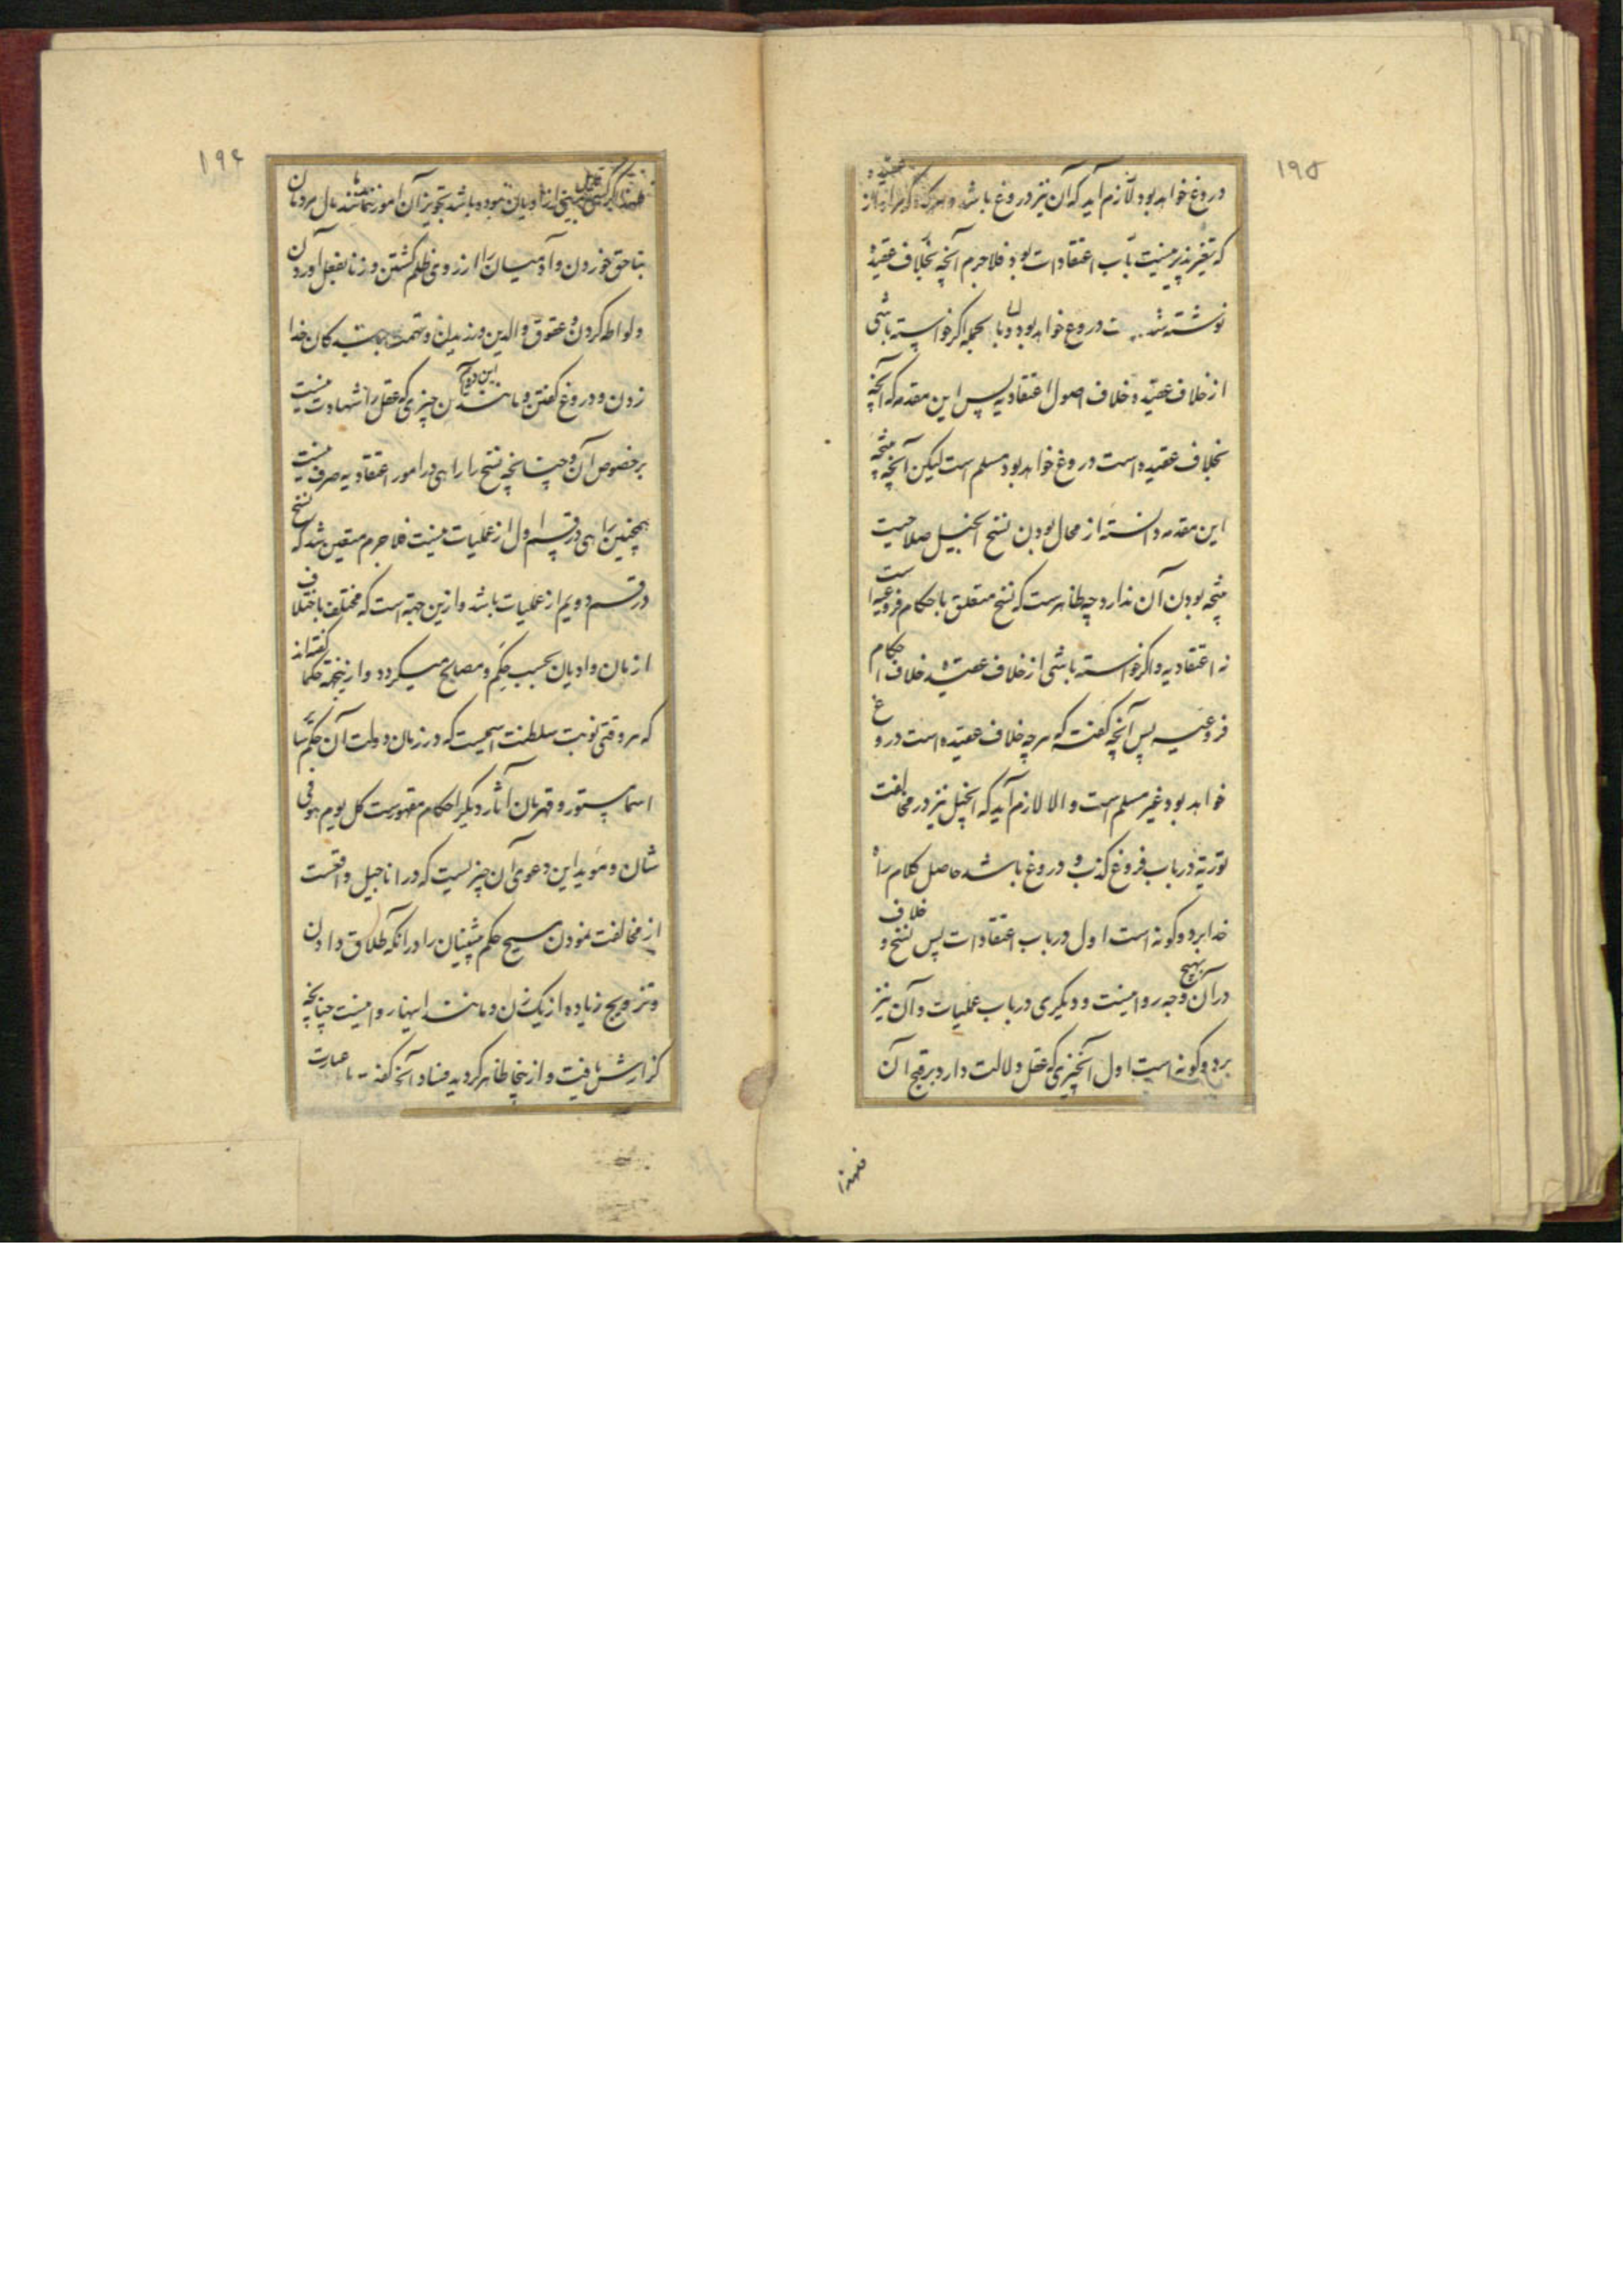 ۱۹۵
دروغ خواهد بود لازم آید که آن نیز دروغ باشد و عقیده
که تغیر پذیر نیست باب اعتقادات بود فلاجرم آنچه بخلاف عقیده
نوشته شد دروغ خواهد بود و بالجمله اگر خواسته باشی
از خلاف عقیده خلاف اصول اعتقادیه پس این مقدمه که آنچه
بخلاف عقیده است دروغ خواهد بود مسلم است لیکن آنچه نتیجه
این مقدمه دانسته از محال بودن نسخ انجیل صلاحیت
نتیجه بودن آن ندارد چه ظاهر است که نسخ متعلق باحکام فروعیه است
نه اعتقادیه و اگر خواسته باشی از خلاف عقیده خلاف احکام
فروعیه پس آنچه گفته که هر چه خلاف عقیده است دروغ
خواهد بود غیر مسلم است و الا لازم آید که انجیل نیز در مخالفت
توریة در باب فروع کذب و دروغ باشد حاصل کلام راه
خدا بر دو گونه است اول در باب اعتقادات پس نسخ و خلاف
در آن بهیچ وجه روا نیست و دیگری در باب عملیات و آن نیز
بر دو گونه است اول آنچیزی که عقل دلالت دارد بر قبح آن
فلهذا
۱۹۶
دینی از ادیان نبوده باشد تجویز آن امور نمانند مال مردمان
بناحق خوردن و آدمیان را از روی ظلم کشتن و زنا بفعل آوردن
و لواطه کردن و عقوق والدین ورزیدن و تهمت به بندگان خدا
زدن و دروغ گفتن و مانند این دوم آن چیزی که عقل را شهادت نیست
بر خصوص آن و چنانچه نسخ را راهی در امور اعتقادیه صرف نیست
همچنین راهی در قسم اول از عملیات نیست فلاجرم متعین شد که نسخ
در قسم دویم از عملیات باشد و ازین جهة است که مختلف باختلاف
ازمان و ادیان بحسب حکم و مصالح میگردد و ازینجهة حکما گفته‌اند
که هر وقتی نوبت سلطنت اسمیست که در زمان دولت آن حکم سایر
اسما مستور و قهرمان آثار دیگر احکام مقهورست کل یوم هو فی
شان و موید این دعوی آن چیزیست که در اناجیل واقعست
از مخالفت نمودن مسیح حکم پیشینیان را در آنکه طلاق دادن
و تزویج زیاده از یک زن و مانند اینها روا نیست چنانچه
گزارش یافت و از اینجا ظاهر گردید فساد آنچه گفته عبارت